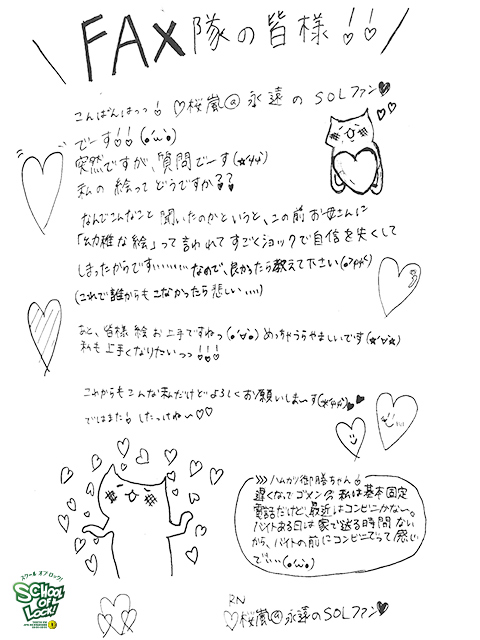 FAX隊の皆様!!
こんばんはっっ! ♡桜嵐@永遠のSOLファン♥
でーす!! (●'ω'●)
突然ですが、質問でーす
私の絵ってどうですか??
なんでこんなこと聞いたのかというと、この前お母さんに
「幼稚な絵」って言われてすごくショックで自信を失くして
しまったからです………… なので、良かったら教えて下さい
(これで誰からもこなかったら悲しい....)
あと、皆様絵お上手ですねっ めっちゃうらやましいです
私も上手くなりたいっっ!!!
これからもこんな私だけどよろしくお願いしまーす
ではまた! したっけねー♡♡
>>>ハムカツ御膳ちゃん!
遅くなってゴメン 私は基本固定
電話だけど最近はコンビニかな。
バイトある日は家で送る時間ない
から、バイトの前にコンビニでって感じ
でいい(●'ω'●)
RN
♡桜嵐@永遠のSOLファン♥
スクール オブ ロック!
SCHOOL OF LOCK!